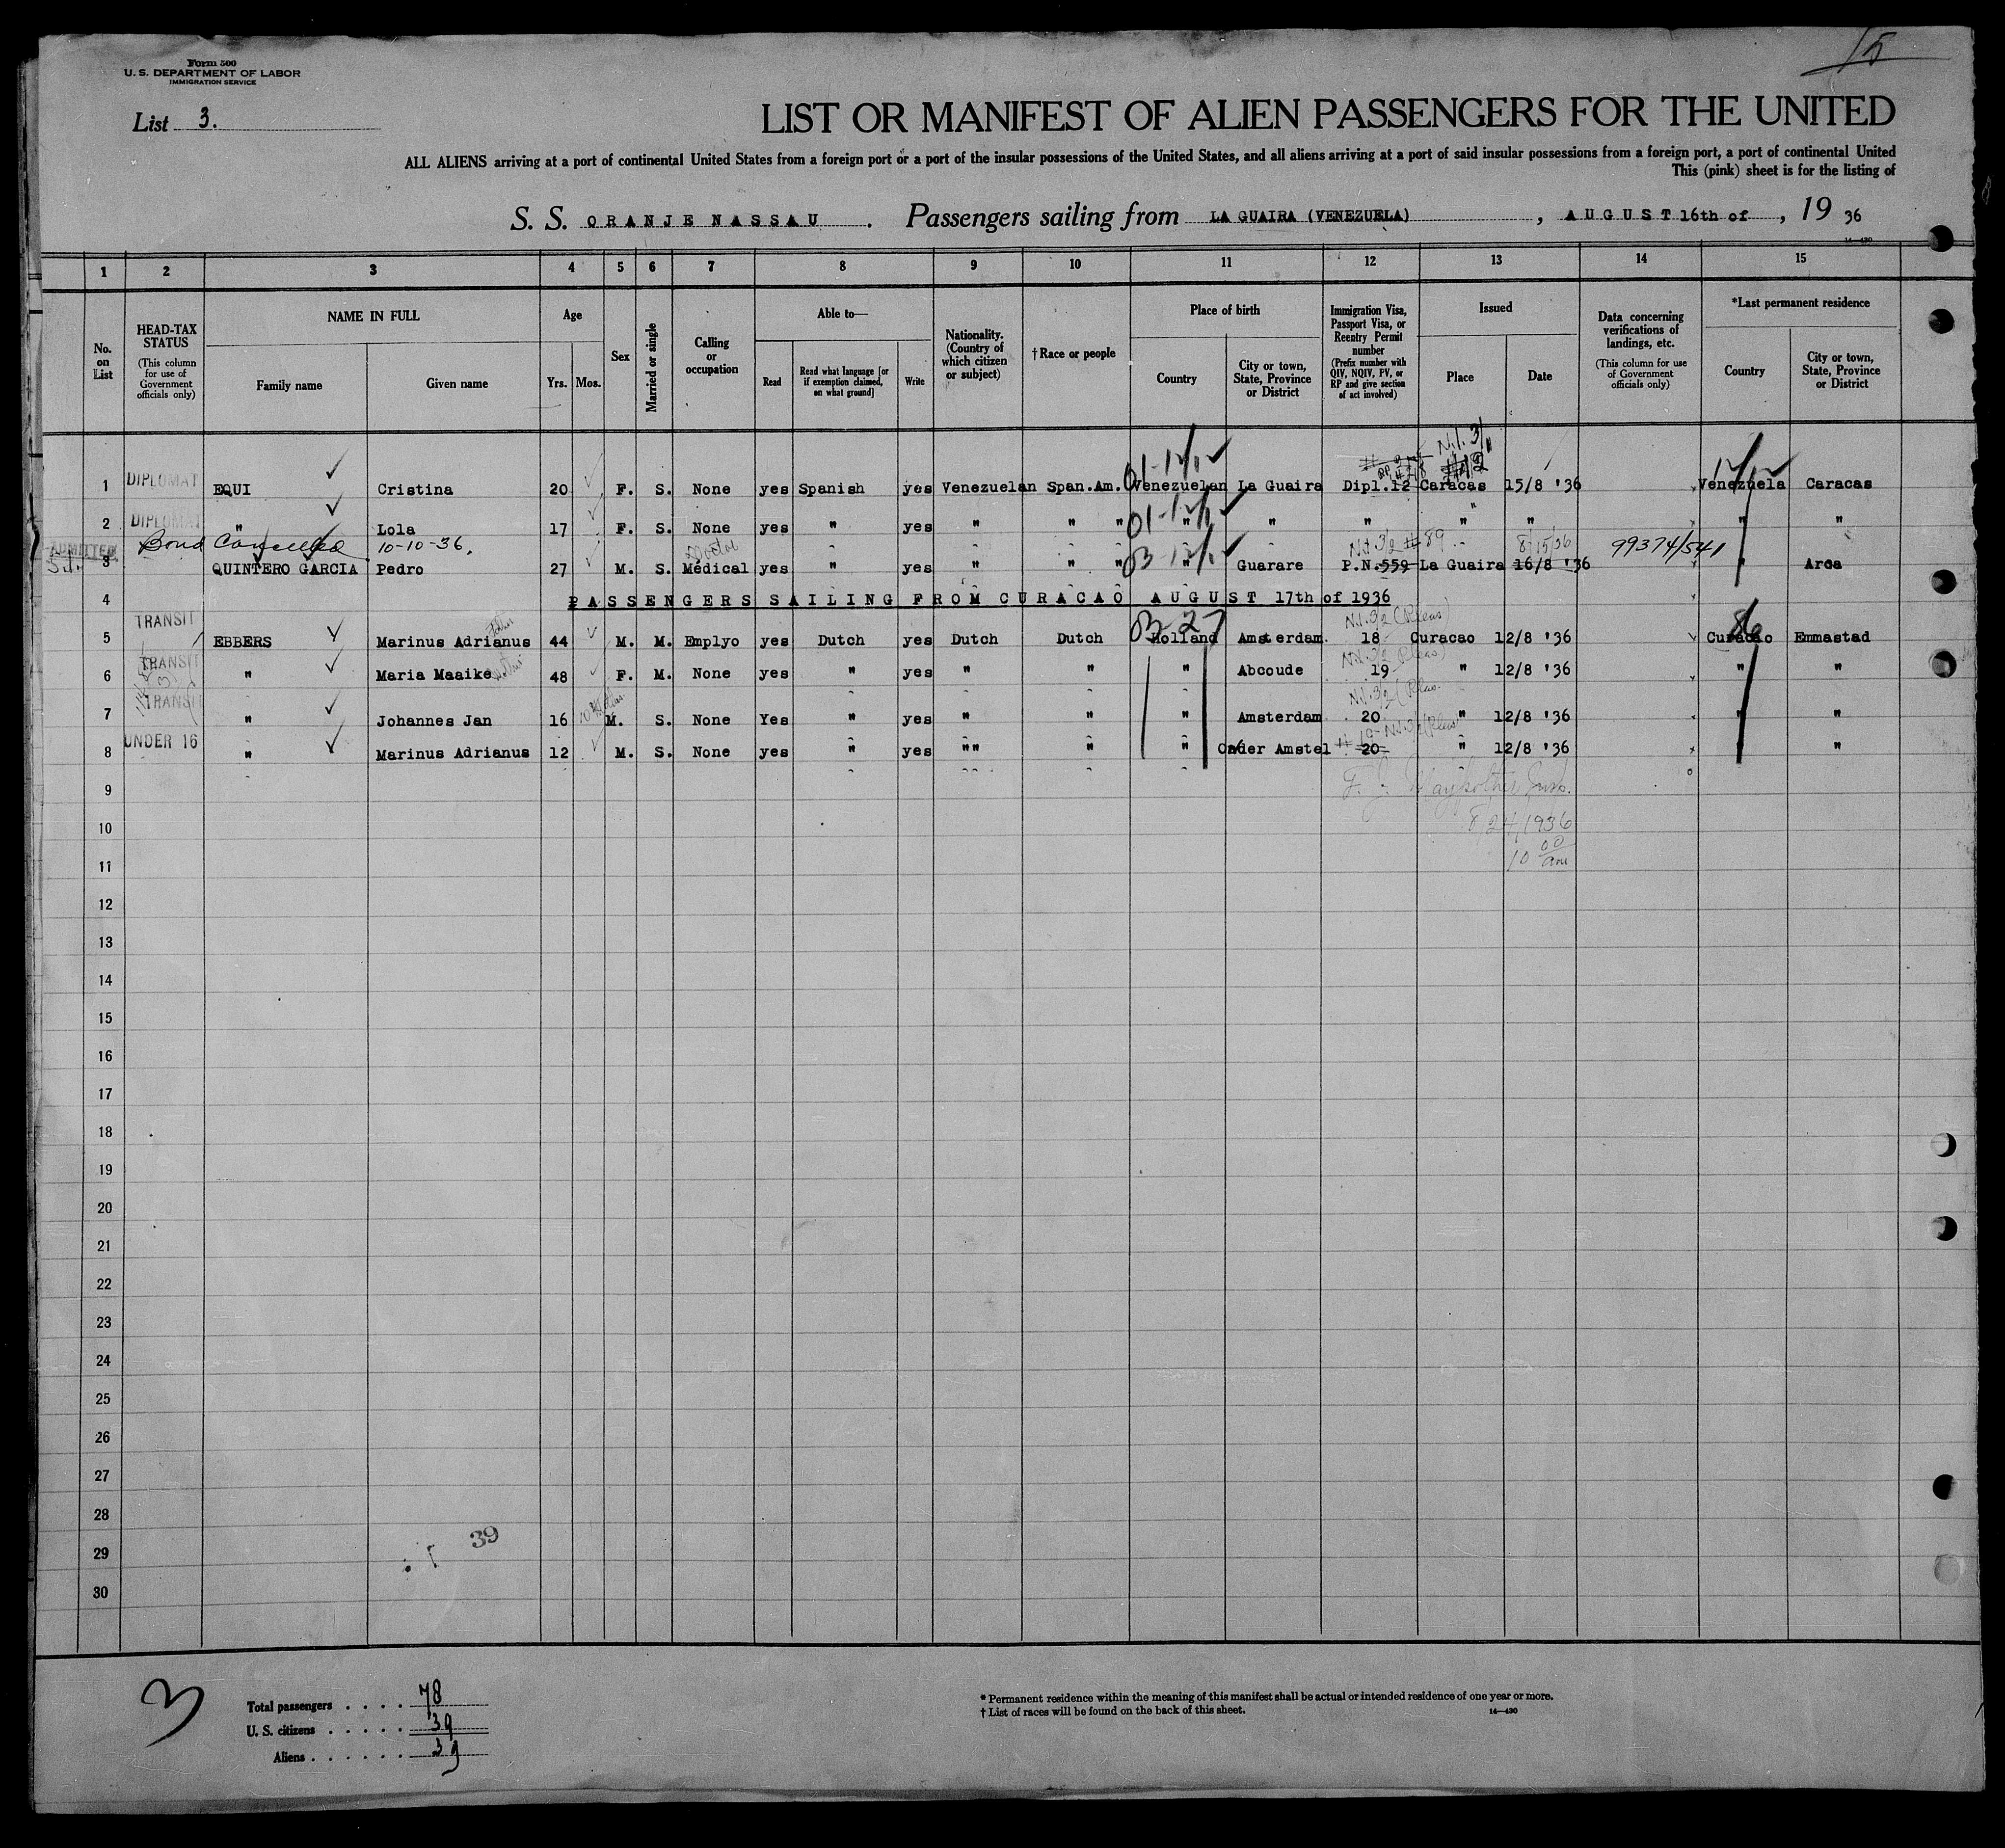 15
Form 500
U. S. DEPARTMENT OF LABOR
IMMIGRATION SERVICE
List 3.
LIST OR MANIFEST OF ALIEN PASSENGERS FOR THE UNITED
ALL ALIENS arriving at a port of continental United States from a foreign port or a port of the insular possessions of the United States, and all aliens arriving at a port of said insular possessions from a foreign port, a port of continental United
This (pink) sheet is for the listing of
S. S. ORANJE NASSAU . Passengers sailing from LA GUAIRA (VENEZUELA) , AUGUST 16th of , 19 36
14—430
1 2 3 4 5 6 7 8 9 10 11 12 13 14 15
No. on List
HEAD-TAX STATUS
(This column for use of Government officials only)
NAME IN FULL
Family name
Given name
Age
Yrs.
Mos.
Sex
Married or single
Calling or occupation
Able to—
Read
Read what language [or if exemption claimed, on what ground]
Write
Nationality. (Country of which citizen or subject)
†Race or people
Place of birth
Country
City or town, State, Province or District
Immigration Visa, Passport Visa, or Reentry Permit number
(Prefix number with QIV, NQIV, PV, or RP and give section of act involved)
Issued
Place
Date
Data concerning verifications of landings, etc.
(This column for use of Government officials only)
*Last permanent residence
Country
City or town, State, Province or District
1 DIPLOMAT EQUI Cristina 20 F. S. None yes Spanish yes Venezuelan Span.Am. Venezuelan La Guaira Dipl.12 Caracas 15/8 '36 Venezuela Caracas
2 DIPLOMAT " Lola 17 F. S. None yes " yes " " " " " " " " "
Bond Cancelled 10-10-36. Doctor N.I. 3/2 #89 8/15/36 99374/541
3 ADMITTED S.I. QUINTERO GARCIA Pedro 27 M. S. Medical yes " yes " " " Guarare P.N.559 La Guaira 16/8 '36 " Aroa
4 PASSENGERS SAILING FROM CURACAO AUGUST 17th of 1936
5 TRANSIT EBBERS Marinus Adrianus 44 M. M. Emplyo yes Dutch yes Dutch Dutch Holland Amsterdam 18 Curacao 12/8 '36 Curacao Emmastad
6 TRANSIT " Maria Maaike 48 F. M. None yes " yes " " " Abcoude 19 " 12/8 '36 " "
7 TRANSIT " Johannes Jan 16 M. S. None Yes " yes " " " Amsterdam 20 " 12/8 '36 " "
8 UNDER 16 " Marinus Adrianus 12 M. S. None yes " yes "" " " Onder Amstel 20 " 12/8 '36 " "
9
8/24/1936
10
10 00 am
11
12
13
14
15
16
17
18
19
20
21
22
23
24
25
26
27
28
39
29
30
3
Total passengers . . . . 78
U. S. citizens . . . . . 39
Aliens . . . . . . 39
* Permanent residence within the meaning of this manifest shall be actual or intended residence of one year or more.
† List of races will be found on the back of this sheet.
14—430